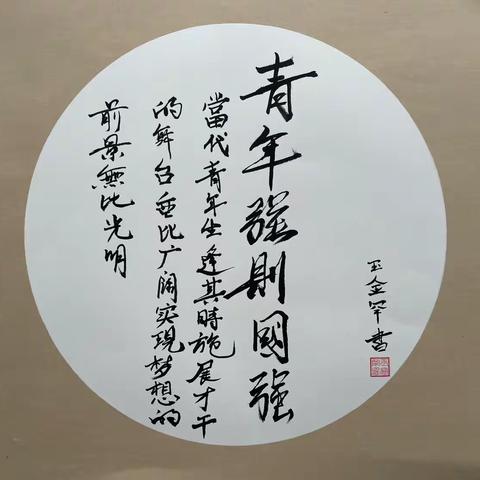 青年强則國強
當代青年生逢其時施展才干
的舞台無比广阔实現梦想的
前景無比光明
王金罕書